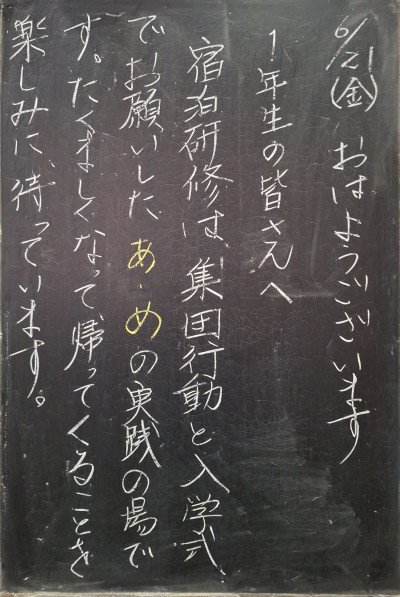 6/21(金) おはようございます
1年生の皆さんへ
宿泊研修は、集団行動と入学式
でお願いした、あ・めの実践の場で
す。たくましくなって、帰ってくることを
楽しみに待っています。